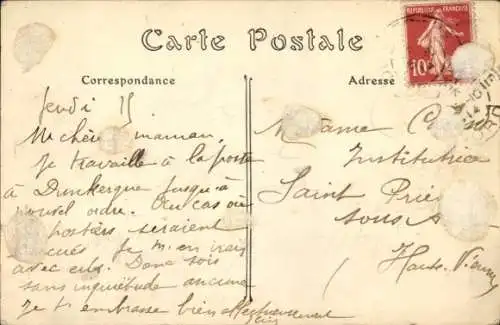 Carte Postale
Correspondance
Adresse
REPUBLIQUE FRANÇAISE
10
Jeudi 15
Ma chère maman,
Je travaille à la poste
à Dunkerque jusqu'à
nouvel ordre. Au cas où
postiers seraient
Je m'en irais
avec eux. Donc sois
sans inquiétude aucune
Je t'embrasse bien affectueusement
Madame
Institutrice
Saint Priest
sous
Haute-Vienne